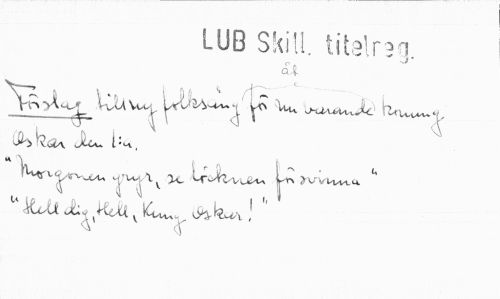 LUB Skill. titelreg.
åt
Förslag till ny folksång för nu varande konung
Oskar den I:a.
"Morgonen gryr, se töcknen försvinna"
"Hell dig, Hell, Kung Oskar!"